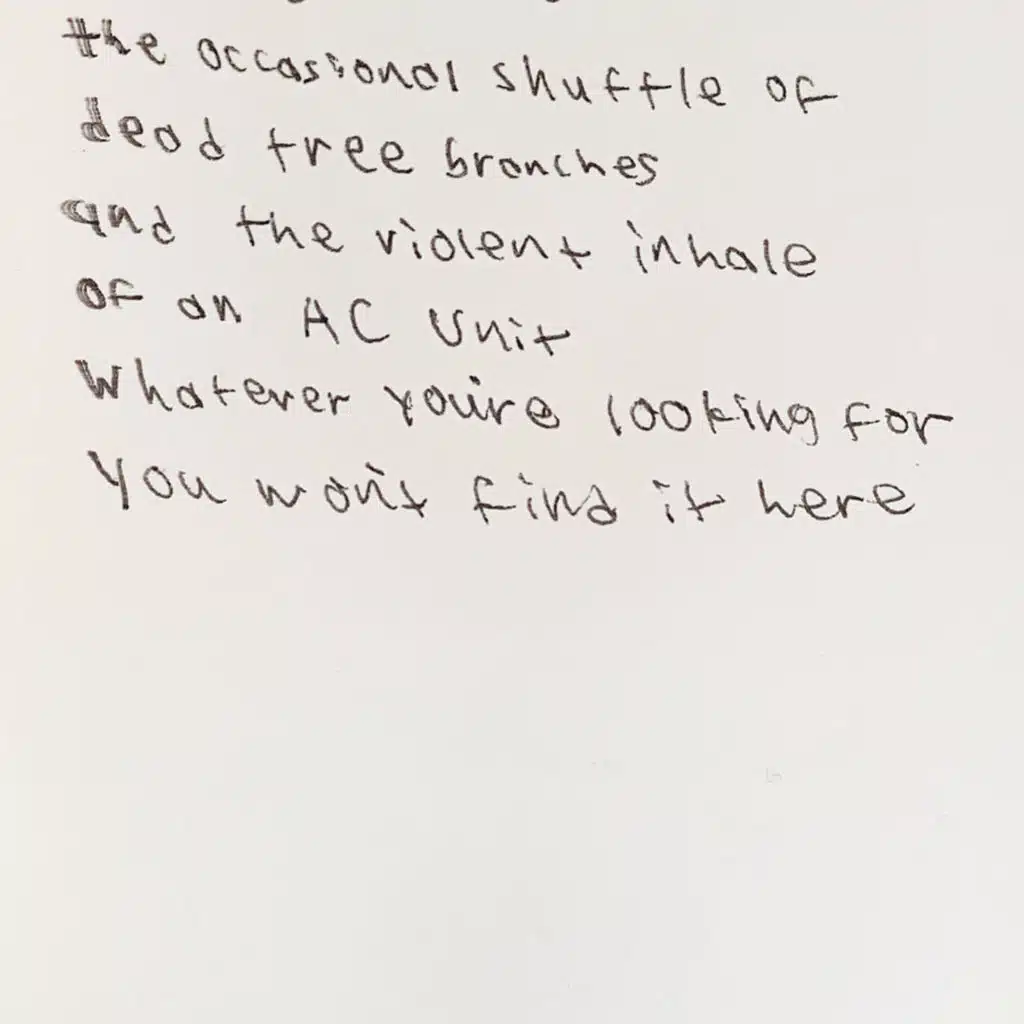 the occasional shuffle of
dead tree branches
and the violent inhale
of an AC Unit
Whatever you're looking for
You won't find it here